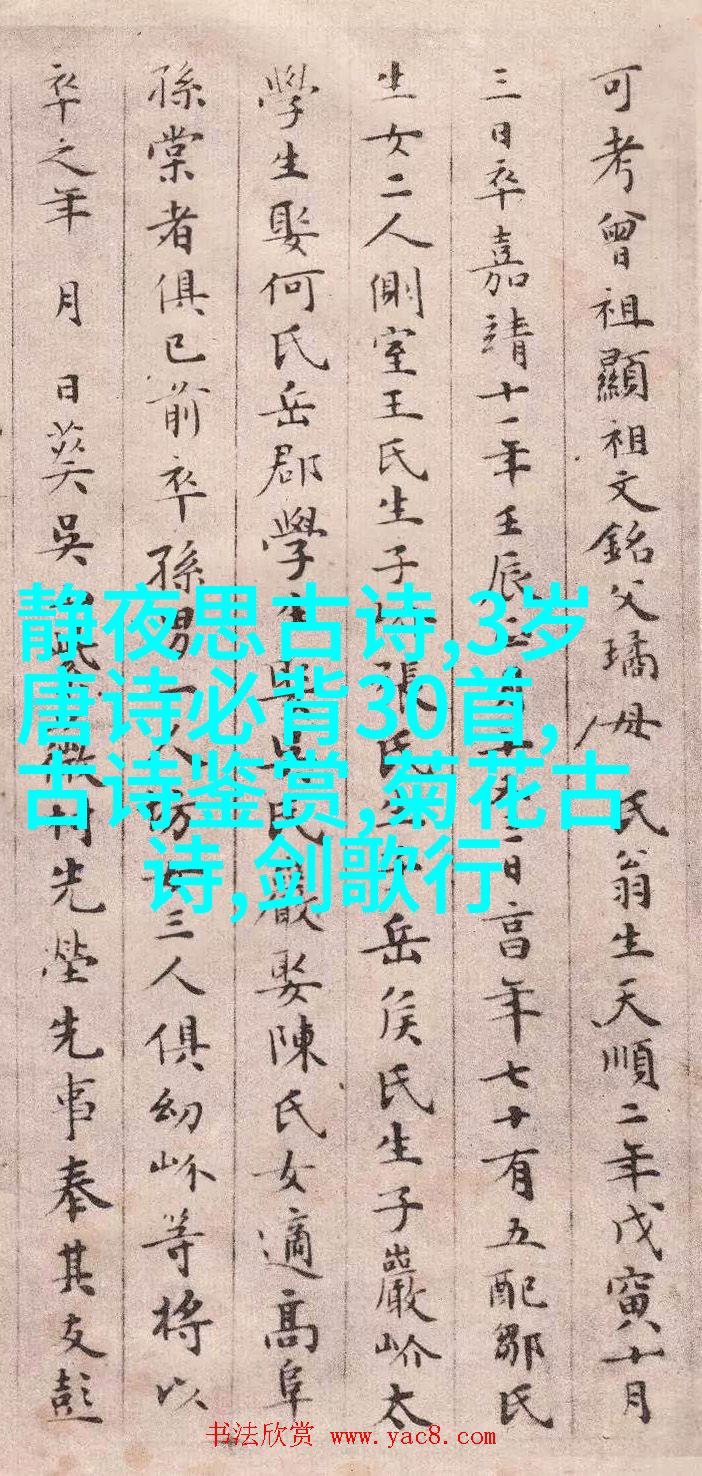 可考曾祖顯祖文銘父璚母 氏翁生天順二年戊寅十月
三日卒嘉靖十一年壬辰 二日亯年七十有五配鄒氏
生女二人側室王氏生子 張氏 岳侯氏生子巖岎太
學生娶何氏岳郡學 吳氏嚴娶陳氏女適高阜
孫棠者俱已前卒孫男一人 女三人俱幼岎等將以
卒之年 月 日葬吳 先塋先事奉其友彭
静夜思古诗,3岁
唐诗必背30首,
古诗鉴赏,菊花古
诗,剑歌行
书法欣赏 www.yac8.com